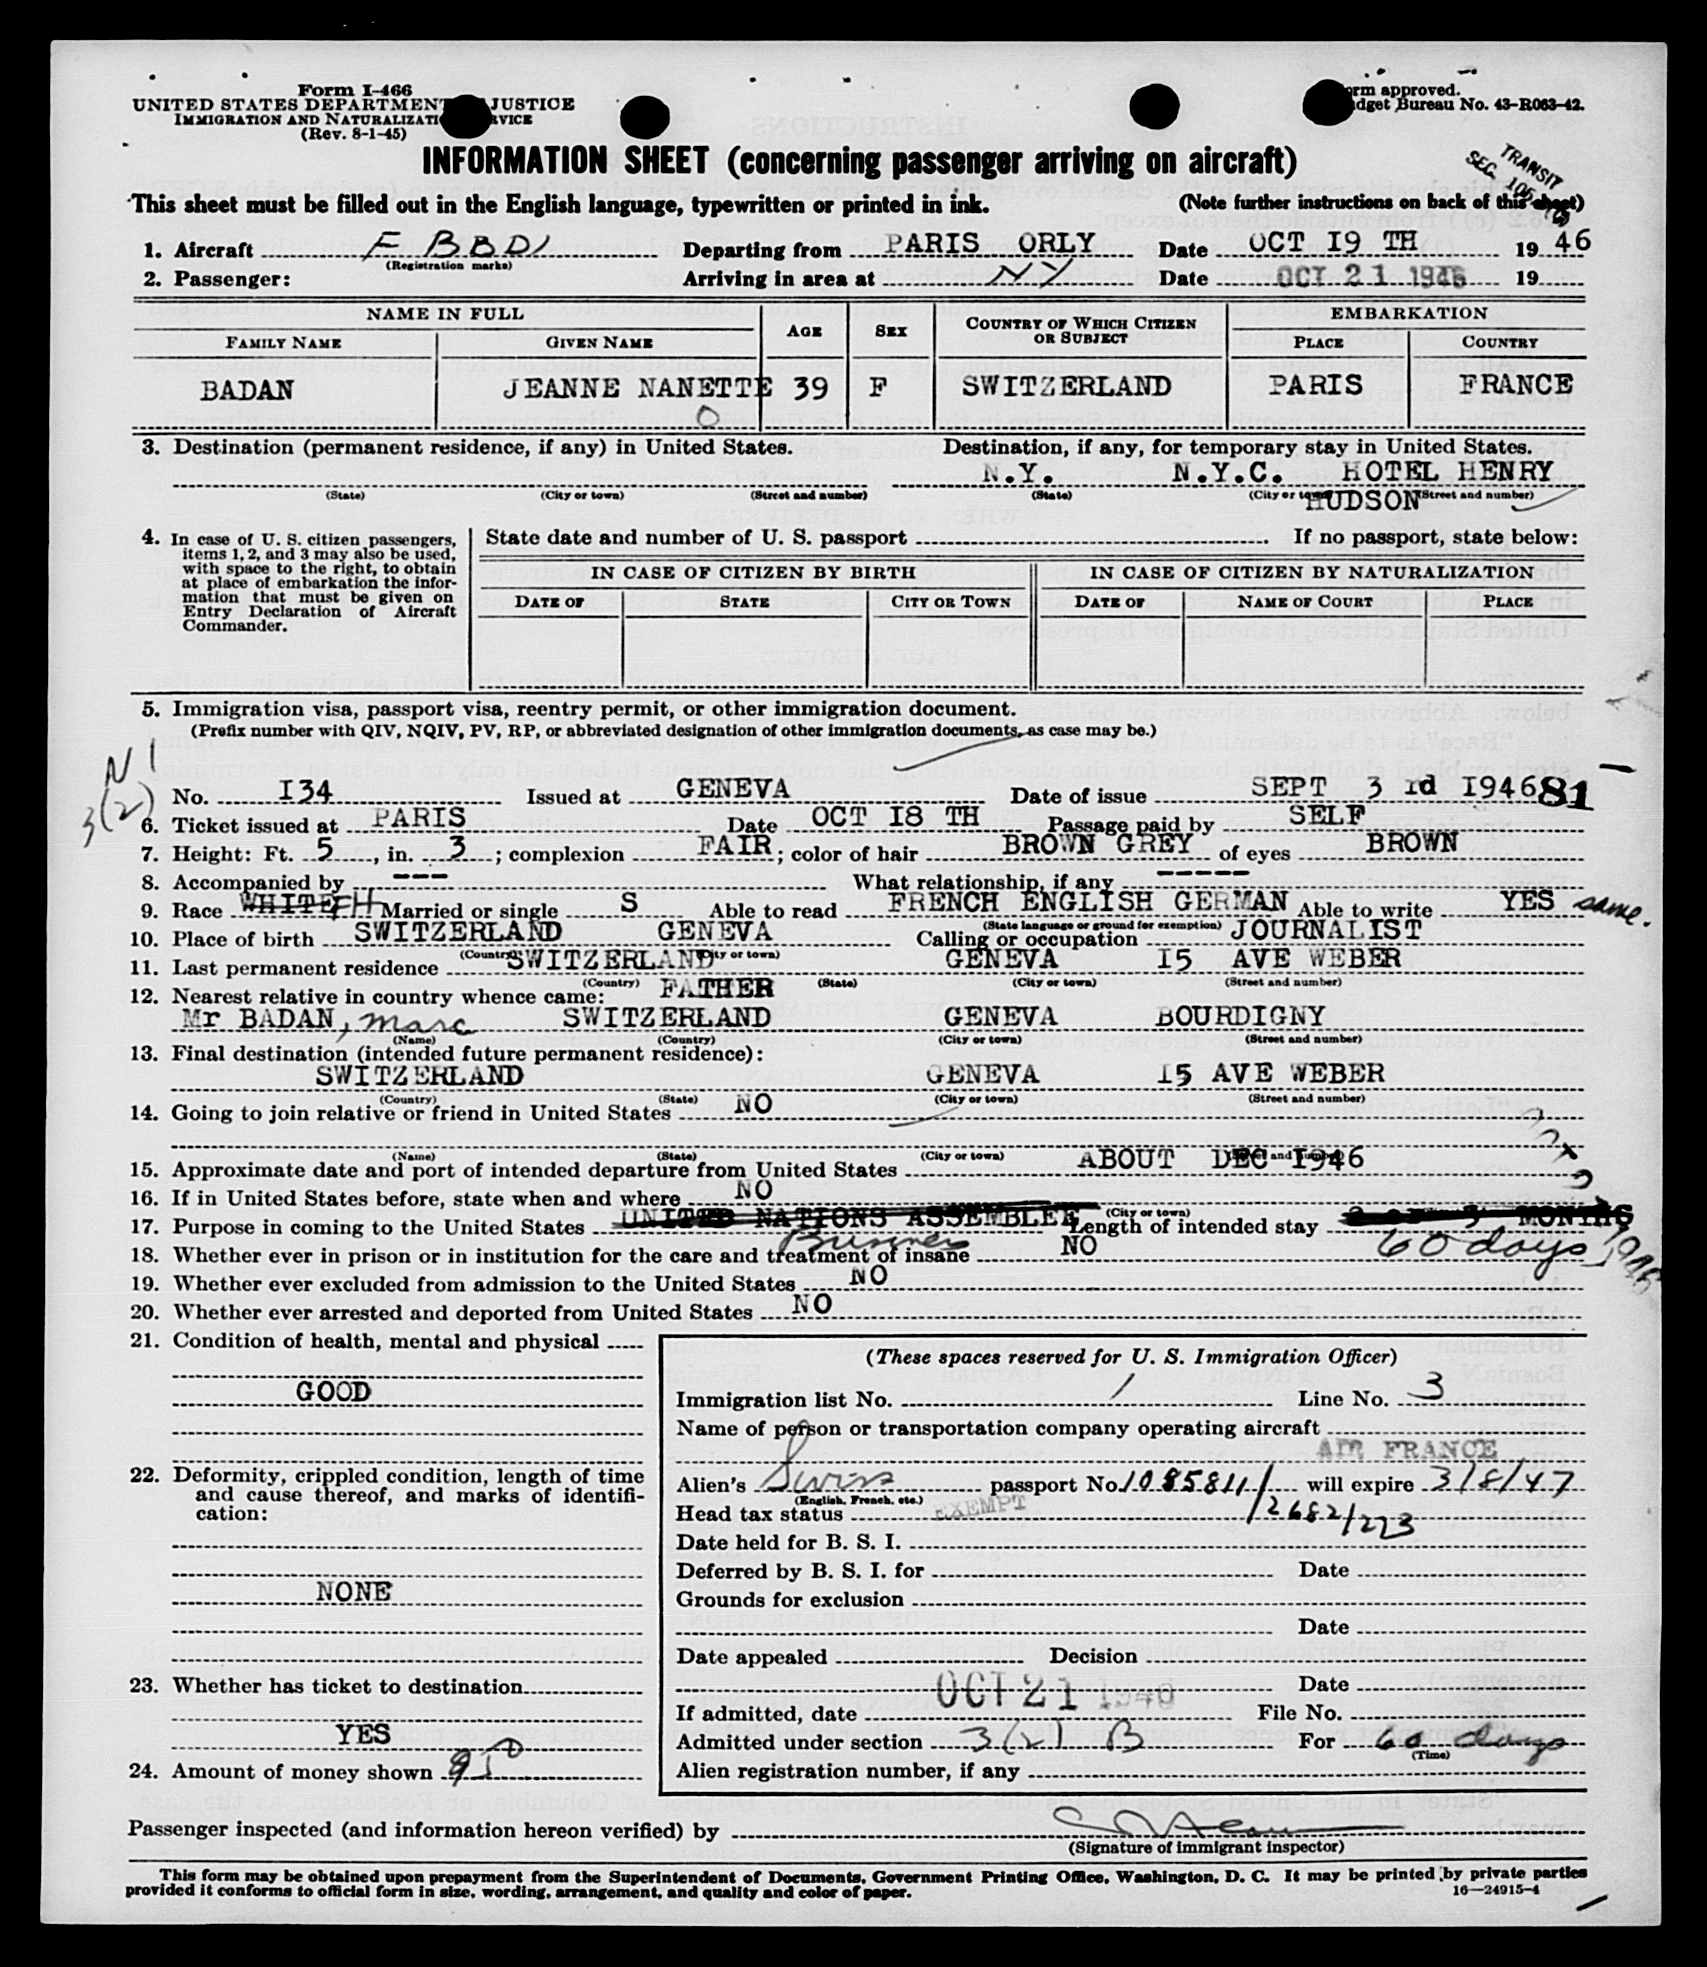 Form I-466
UNITED STATES DEPARTMENT JUSTICE
IMMIGRATION AND NATURALIZATI RVICE
(Rev. 8-1-45)
rm approved.
dget Bureau No. 43-R063-42.
INFORMATION SHEET (concerning passenger arriving on aircraft)
TRANSIT
SEC. 105
This sheet must be filled out in the English language, typewritten or printed in ink. (Note further instructions on back of this sheet)
1. Aircraft F BBDI Departing from PARIS ORLY Date OCT I9 TH 19 46
(Registration marks)
2. Passenger: Arriving in area at NY Date OCT 21 1946 19
NAME IN FULL AGE SEX COUNTRY OF WHICH CITIZEN OR SUBJECT EMBARKATION
FAMILY NAME GIVEN NAME PLACE COUNTRY
BADAN JEANNE NANETTE 39 F SWITZERLAND PARIS FRANCE
O
3. Destination (permanent residence, if any) in United States. Destination, if any, for temporary stay in United States.
N.Y. N.Y.C. HOTEL HENRY
(State) (City or town) (Street and number) (State) (City or town) (Street and number)
HUDSON
4. In case of U. S. citizen passengers, items 1, 2, and 3 may also be used, with space to the right, to obtain at place of embarkation the information that must be given on Entry Declaration of Aircraft Commander.
State date and number of U. S. passport If no passport, state below:
IN CASE OF CITIZEN BY BIRTH IN CASE OF CITIZEN BY NATURALIZATION
DATE OF STATE CITY OR TOWN DATE OF NAME OF COURT PLACE
5. Immigration visa, passport visa, reentry permit, or other immigration document.
(Prefix number with QIV, NQIV, PV, RP, or abbreviated designation of other immigration documents, as case may be.)
N 1
3(2)
No. I34 Issued at GENEVA Date of issue SEPT 3 rd I946 81
6. Ticket issued at PARIS Date OCT I8 TH Passage paid by SELF
7. Height: Ft. 5, in. 3; complexion FAIR; color of hair BROWN GREY of eyes BROWN
8. Accompanied by --- What relationship, if any -----
9. Race WHITE Married or single S Able to read FRENCH ENGLISH GERMAN Able to write YES same.
(State language or ground for exemption)
10. Place of birth SWITZERLAND GENEVA Calling or occupation JOURNALIST
(Country) (City or town)
11. Last permanent residence SWITZERLAND GENEVA I5 AVE WEBER
(Country) (State) (City or town) (Street and number)
12. Nearest relative in country whence came: FATHER
Mr BADAN, Marc SWITZERLAND GENEVA BOURDIGNY
(Name) (Country) (City or town) (Street and number)
13. Final destination (intended future permanent residence):
SWITZERLAND GENEVA I5 AVE WEBER
(Country) (State) (City or town) (Street and number)
14. Going to join relative or friend in United States NO
(Name) (State) (City or town) (Street and number)
15. Approximate date and port of intended departure from United States ABOUT DEC I946
16. If in United States before, state when and where NO
(City or town)
17. Purpose in coming to the United States UNITED NATIONS ASSEMBLEE Length of intended stay MONTHS
Business 60 days
18. Whether ever in prison or in institution for the care and treatment of insane NO
19. Whether ever excluded from admission to the United States NO
20. Whether ever arrested and deported from United States NO
21. Condition of health, mental and physical
GOOD
22. Deformity, crippled condition, length of time and cause thereof, and marks of identification:
NONE
23. Whether has ticket to destination
YES
24. Amount of money shown
(These spaces reserved for U. S. Immigration Officer)
Immigration list No. 1 Line No. 3
Name of person or transportation company operating aircraft
AIR FRANCE
Alien's Swiss passport No. 1085811/ will expire 3/8/47
(English, French, etc.)
Head tax status EXEMPT /2682/223
Date held for B. S. I.
Deferred by B. S. I. for Date
Grounds for exclusion
Date
Date appealed Decision
Date
If admitted, date OCT 21 1946 File No.
Admitted under section 3(2) B For 60 days
(Time)
Alien registration number, if any
Passenger inspected (and information hereon verified) by
(Signature of immigrant inspector)
This form may be obtained upon prepayment from the Superintendent of Documents, Government Printing Office, Washington, D. C. It may be printed by private parties
provided it conforms to official form in size, wording, arrangement, and quality and color of paper. 16—24915-4